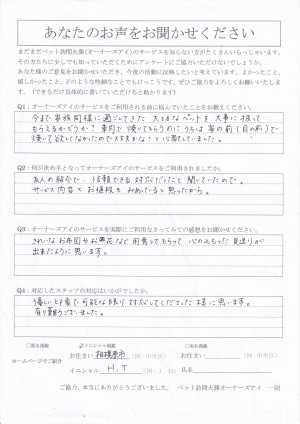 あなたのお声をお聞かせください
まだまだペット訪問火葬(オーナーズアイ)のサービスを知らない方がたくさんいらっしゃいます。
その方たちに少しでも知っていただくためにアンケートにご協力いただけないでしょうか。
あなた様のご意見をお聞かせいただき、今後の活動に反映したいと考えています。よかったこと、
嬉しかったこと、どのような些細なことでもけっこうです。ぜひご協力をよろしくお願いいたします。
(できるだけ具体的に書いていただけると助かります)
Q1：オーナーズアイのサービスをご利用される前に悩んでいたことをお教えください。
今まで家族同様に過ごしてきた 大切なペットを 大事に扱って
もらえるかどうか？ 車内で焼いてもらうのにうちは家の前(目の前)で
焼いて欲しくなかったので大丈夫かな？と心配していました。
Q2：何が決め手となってオーナーズアイのサービスをご利用されましたか。
友人の紹介で、信頼できる対応だったと聞いていたので。
サービス内容とお値段もみあっていると思ったから。
Q3：オーナーズアイのサービスを実際にご利用になさってみての感想をお聞かせください。
きれいなお布団やお花など用意してもらって、心のこもった見送りが
出来たように思います。
Q4：対応したスタッフの対応はいかがでしたか。
優しい印象で可能な限り対応してくださった様に思います。
有り難うございました。
□実名掲載
イニシャル掲載
□匿名掲載
ホームページでご紹介
お住まい 相模原市 (例：中央区)
お住まい (例：中央区)
イニシャル H.T (例：J.H)
氏名
ご協力、本当にありがとうございました。 ペット訪問火葬オーナーズアイ 一同